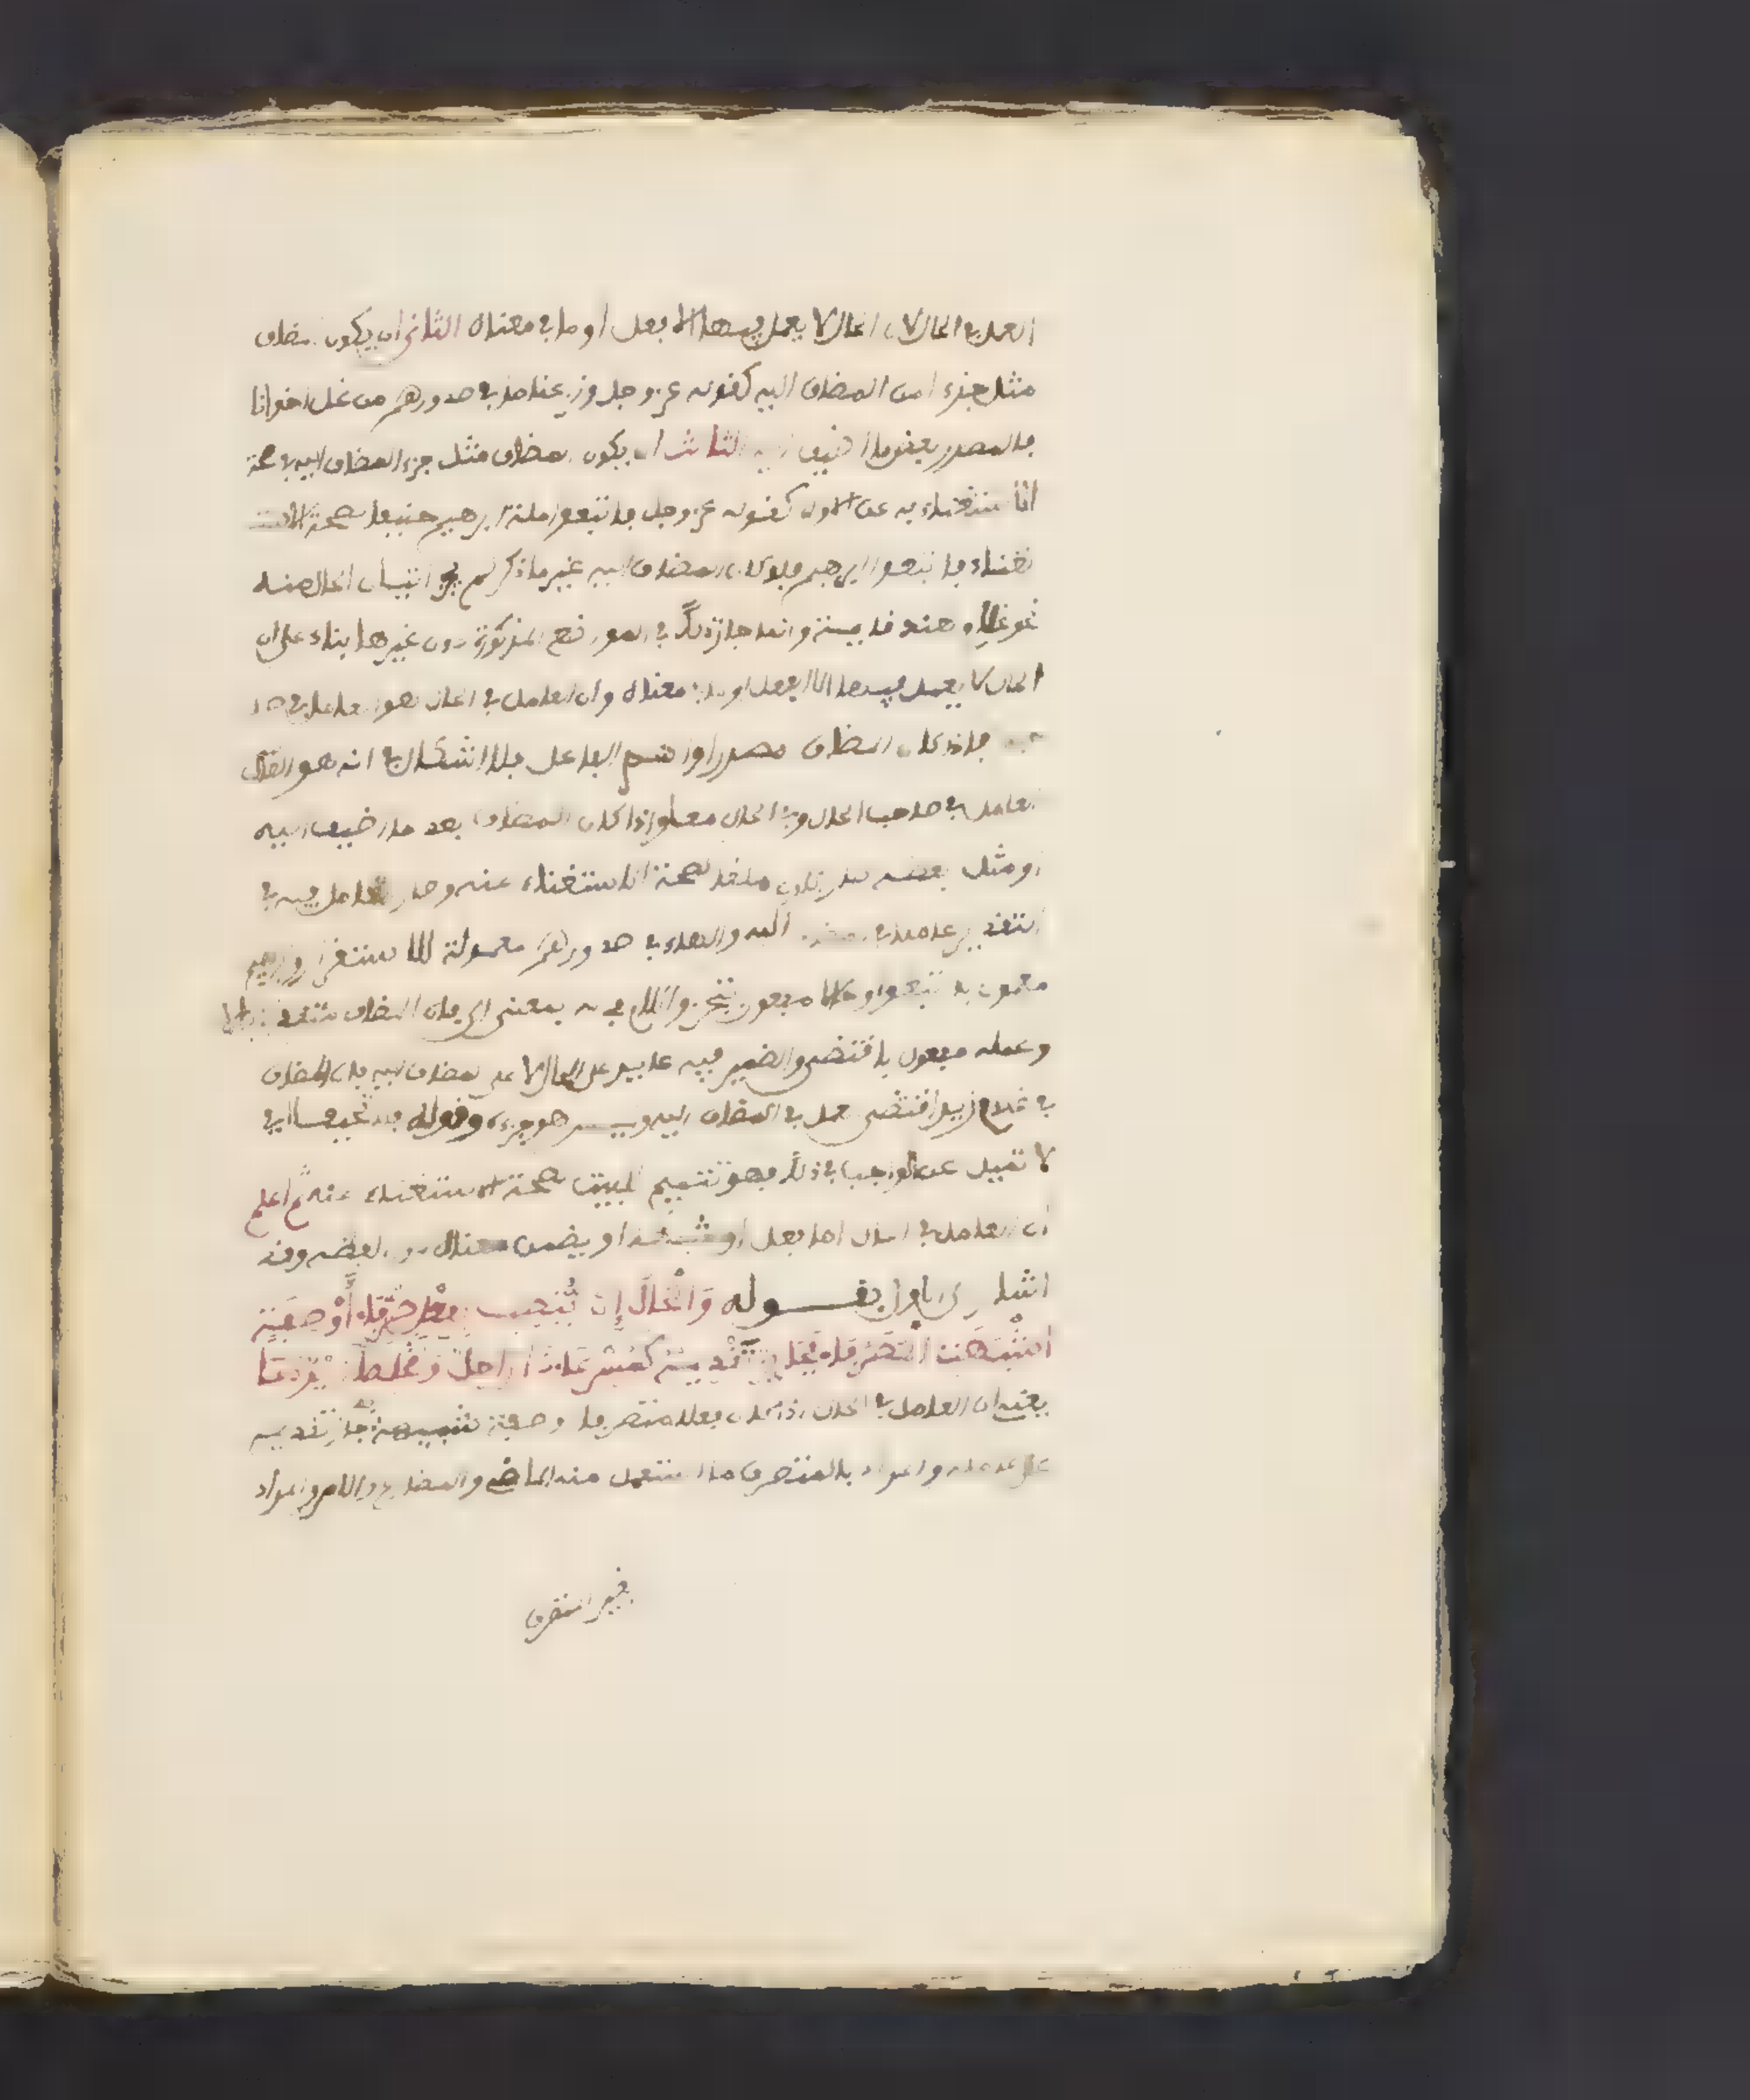 العمل في الحال لان الحال لا يعمل فيها الا فعل او ما في معناه الثاني ان يكون المضاف
مثل جزءا من المضاف اليه كقوله عز وجل ونزعنا ما في صدورهم من غل اخوانا
فالصدور بعض ما اضيف اليه الثالث ان يكون المضاف مثل جزء المضاف اليه في صحة
الاستغناء به عن الاول كقوله عز وجل فاتبعوا ملة ابرهيم حنيفا لصحة الاست
تغناء فاتبعوا ابرهيم فلو كان المضاف اليه غير ما ذكر لم يجز اتيان الحال منه
نحو غلام هند قايمة وانما جاز ذلك في المواضع المذكورة دون غيرها بناء على ان
الحال لا يعمل فيها الا الفعل او ما في معناه وان العامل في الحال هو العامل في صا
حبه فاذا كان المضاف مصدرا او اسم الفاعل فلا اشكال في انه هو
العامل في صاحب الحال وفي الحال معا واذا كان المضاف بعض ما اضيف اليه
او مثل بعضه صار كان ملغى لصحة الاستغناء عنه وصار العامل فيه في
التقدير عاملا في المضاف اليه والهاء في صدورهم معمولة للاستقرار وابرهيم
معمول لاتبعوا ومفعول تجز واللام في له بمعنى الى فان المضاف
وعمله مفعول باقتضى والضمير فيه عايد على الحال لا على المضاف اليه فان المضاف
في غلام زيد اقتضى عمل في المضاف اليه وليس هو جزءه وقوله فلا تحيفا اي
لا تميل عن الواجب في ذلك فهو تتميم للبيت لصحة الاستغناء عنه ثم اعلم
ان العامل في الحال اما فعل او شبهه او يضمن معناه دون لفظه وقد
اشار الى الاول بقوله وَالْحَالُ إِن يُنْصَب بِفِعْلٍ صُرِّفَا أَوْ صِفَةٍ
أَشْبَهَت الْمُصَرَّفَا فَجَائِزٌ تَقْدِيمُهُ كَمُسْرِعَا ذَا رَاحِلٌ وَمُخْلِصًا زَيْدٌ دَعَا
يعني ان العامل في الحال اذا كان فعلا متصرفا او صفة تشبهه جاز تقديمه
على عامله والمراد بالمتصرف ما استعمل منه الماضي والمضارع والامر والمراد
بغير المتصرف